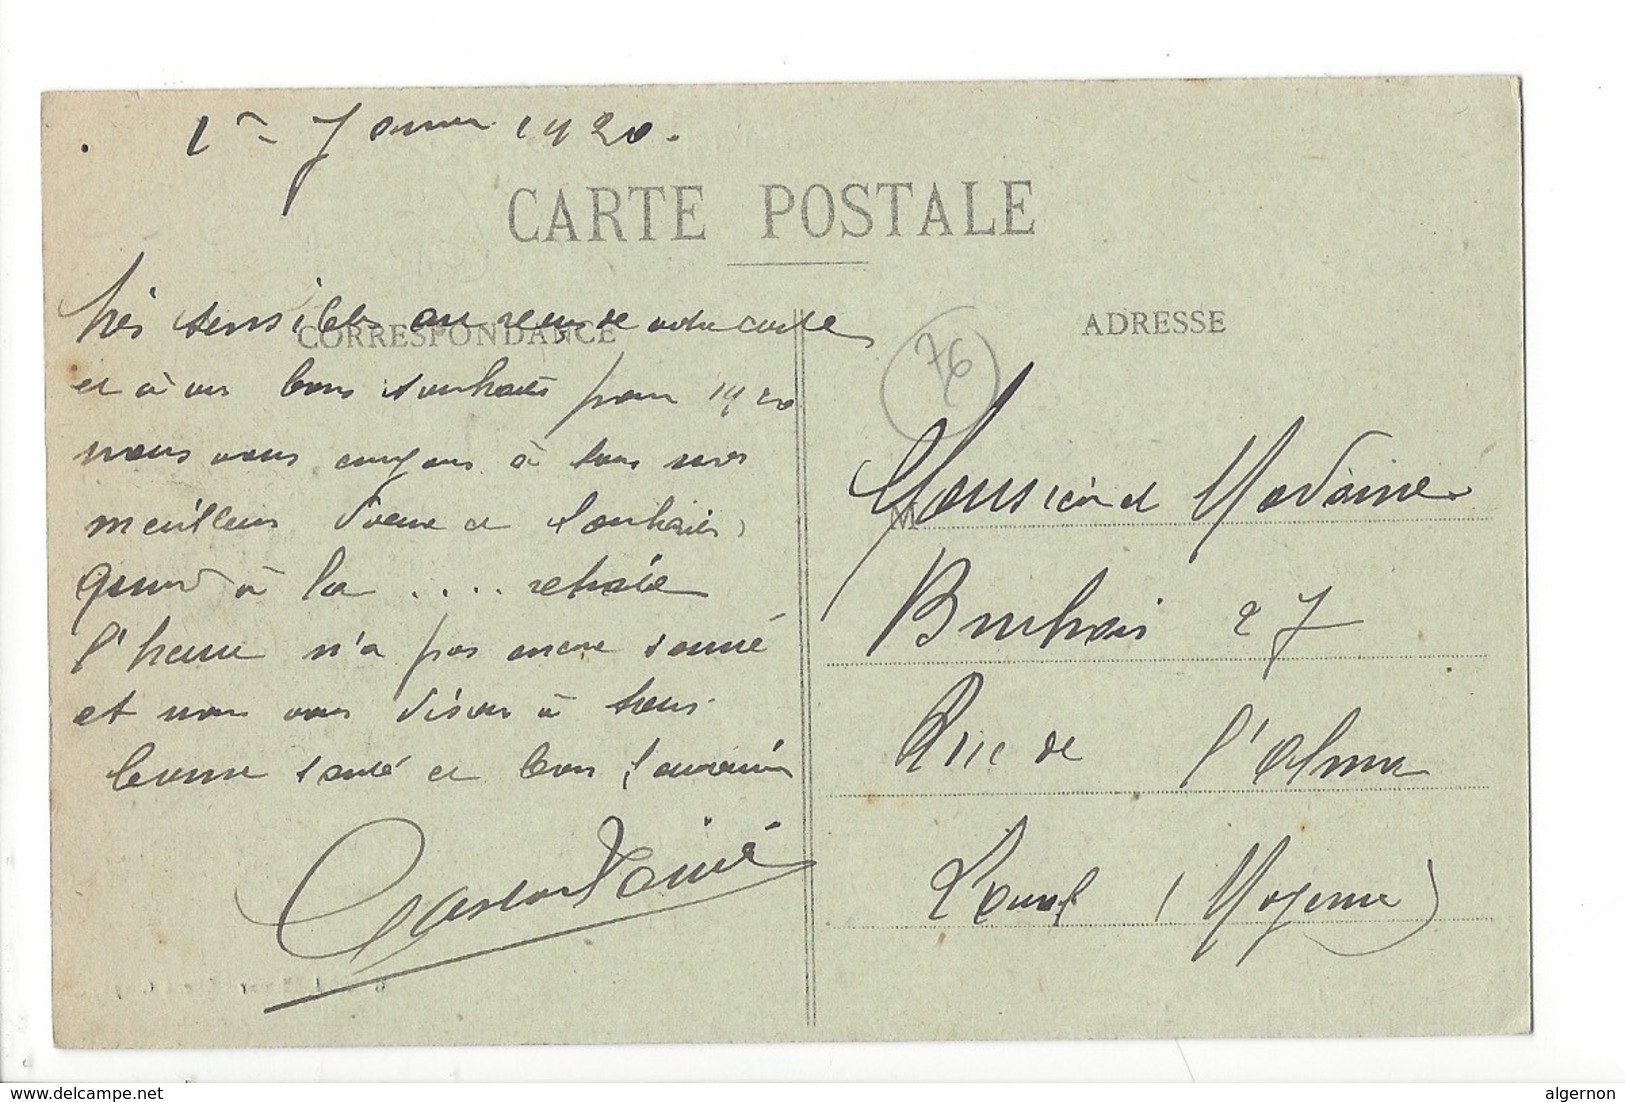 1er Janvier 1920.
CARTE POSTALE
CORRESPONDANCE
très sensibles au reçu de votre carte
et à vos bons souhaits pour 1920
nous vous envoyons à tous nos
meilleurs vœux et souhaits,
quand à la .... retraite
l'heure n'a pas encore sonné
et nous vous disons à tous
bonne santé et bon souvenir
Gaston
ADRESSE
76
M
Monsieur et Madame
27
Rue de l'Alma
Laval (Mayenne)
delcampe.net
algernon